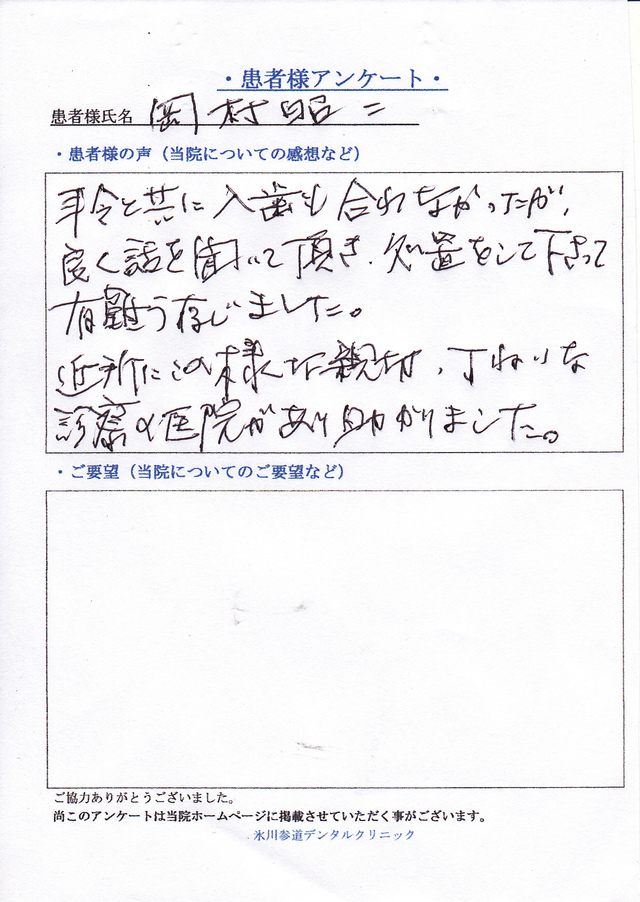 ・患者様アンケート・
患者様氏名 岡村昭二
・患者様の声（当院についての感想など）
年令と共に入歯も合わなかったが、
良く話を聞いて頂き、処置をして下さって
有難う存じました。
近所にこの様な親切、丁ねいな
診察の医院があり助かりました。
・ご要望（当院についてのご要望など）
ご協力ありがとうございました。
尚このアンケートは当院ホームページに掲載させていただく事がございます。
氷川参道デンタルクリニック